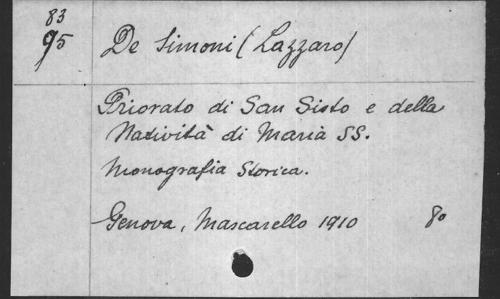 83
95
De Simoni (Lazzaro)
Priorato di San Sisto e della
Natività di Maria SS.
Monografia Storica.
Genova, Mascarello 1910 8o